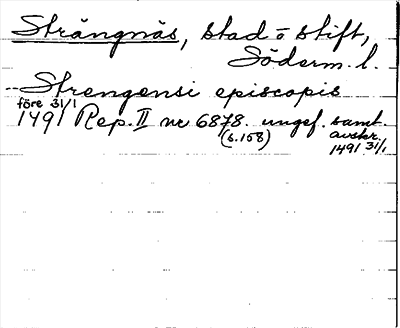 Strängnäs, stad o stift,
Söderm. l.
-- Strengensi episcopis
före 31/1
1491 Rep. II nr 6878. ungef. samt.
(s. 158) avskr.
1491 31/1